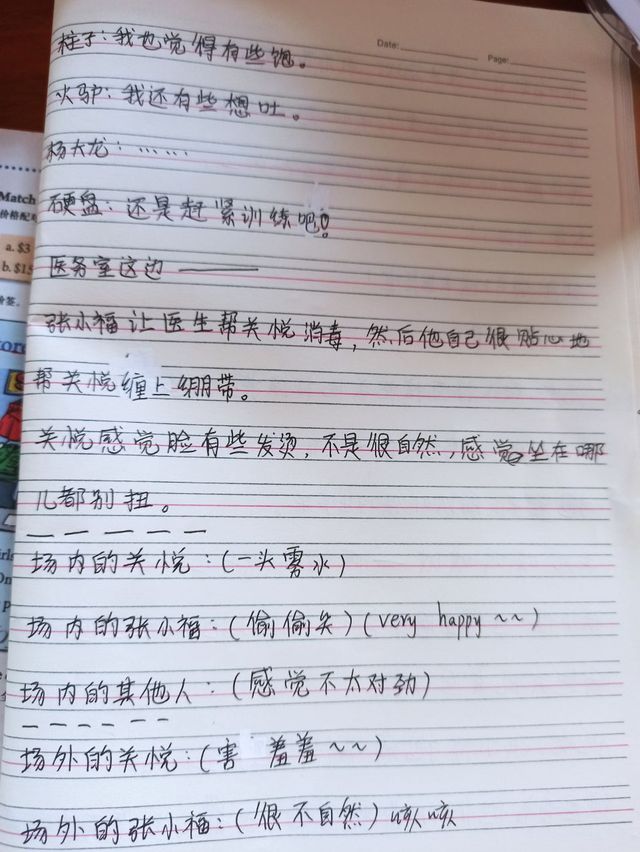 Date:
Page:
柱子：我也觉得有些饱。
火驴：我还有些想吐。
杨大龙：……
硬盘：还是赶紧训练吧！
医务室这边 ———
张小福让医生帮关悦消毒，然后他自己很贴心地
帮关悦缠上绷带。
关悦感觉脸有些发烫，不是很自然，感觉坐在哪
儿都别扭。
— — — — —
场内的关悦：（一头雾水）
场内的张小福：（偷偷笑）（very happy ~~）
场内的其他人：（感觉不太对劲）
— — — — —
场外的关悦：（害羞羞~~）
场外的张小福：（很不自然）咳咳
Match
价格配
a. $3
b. $15